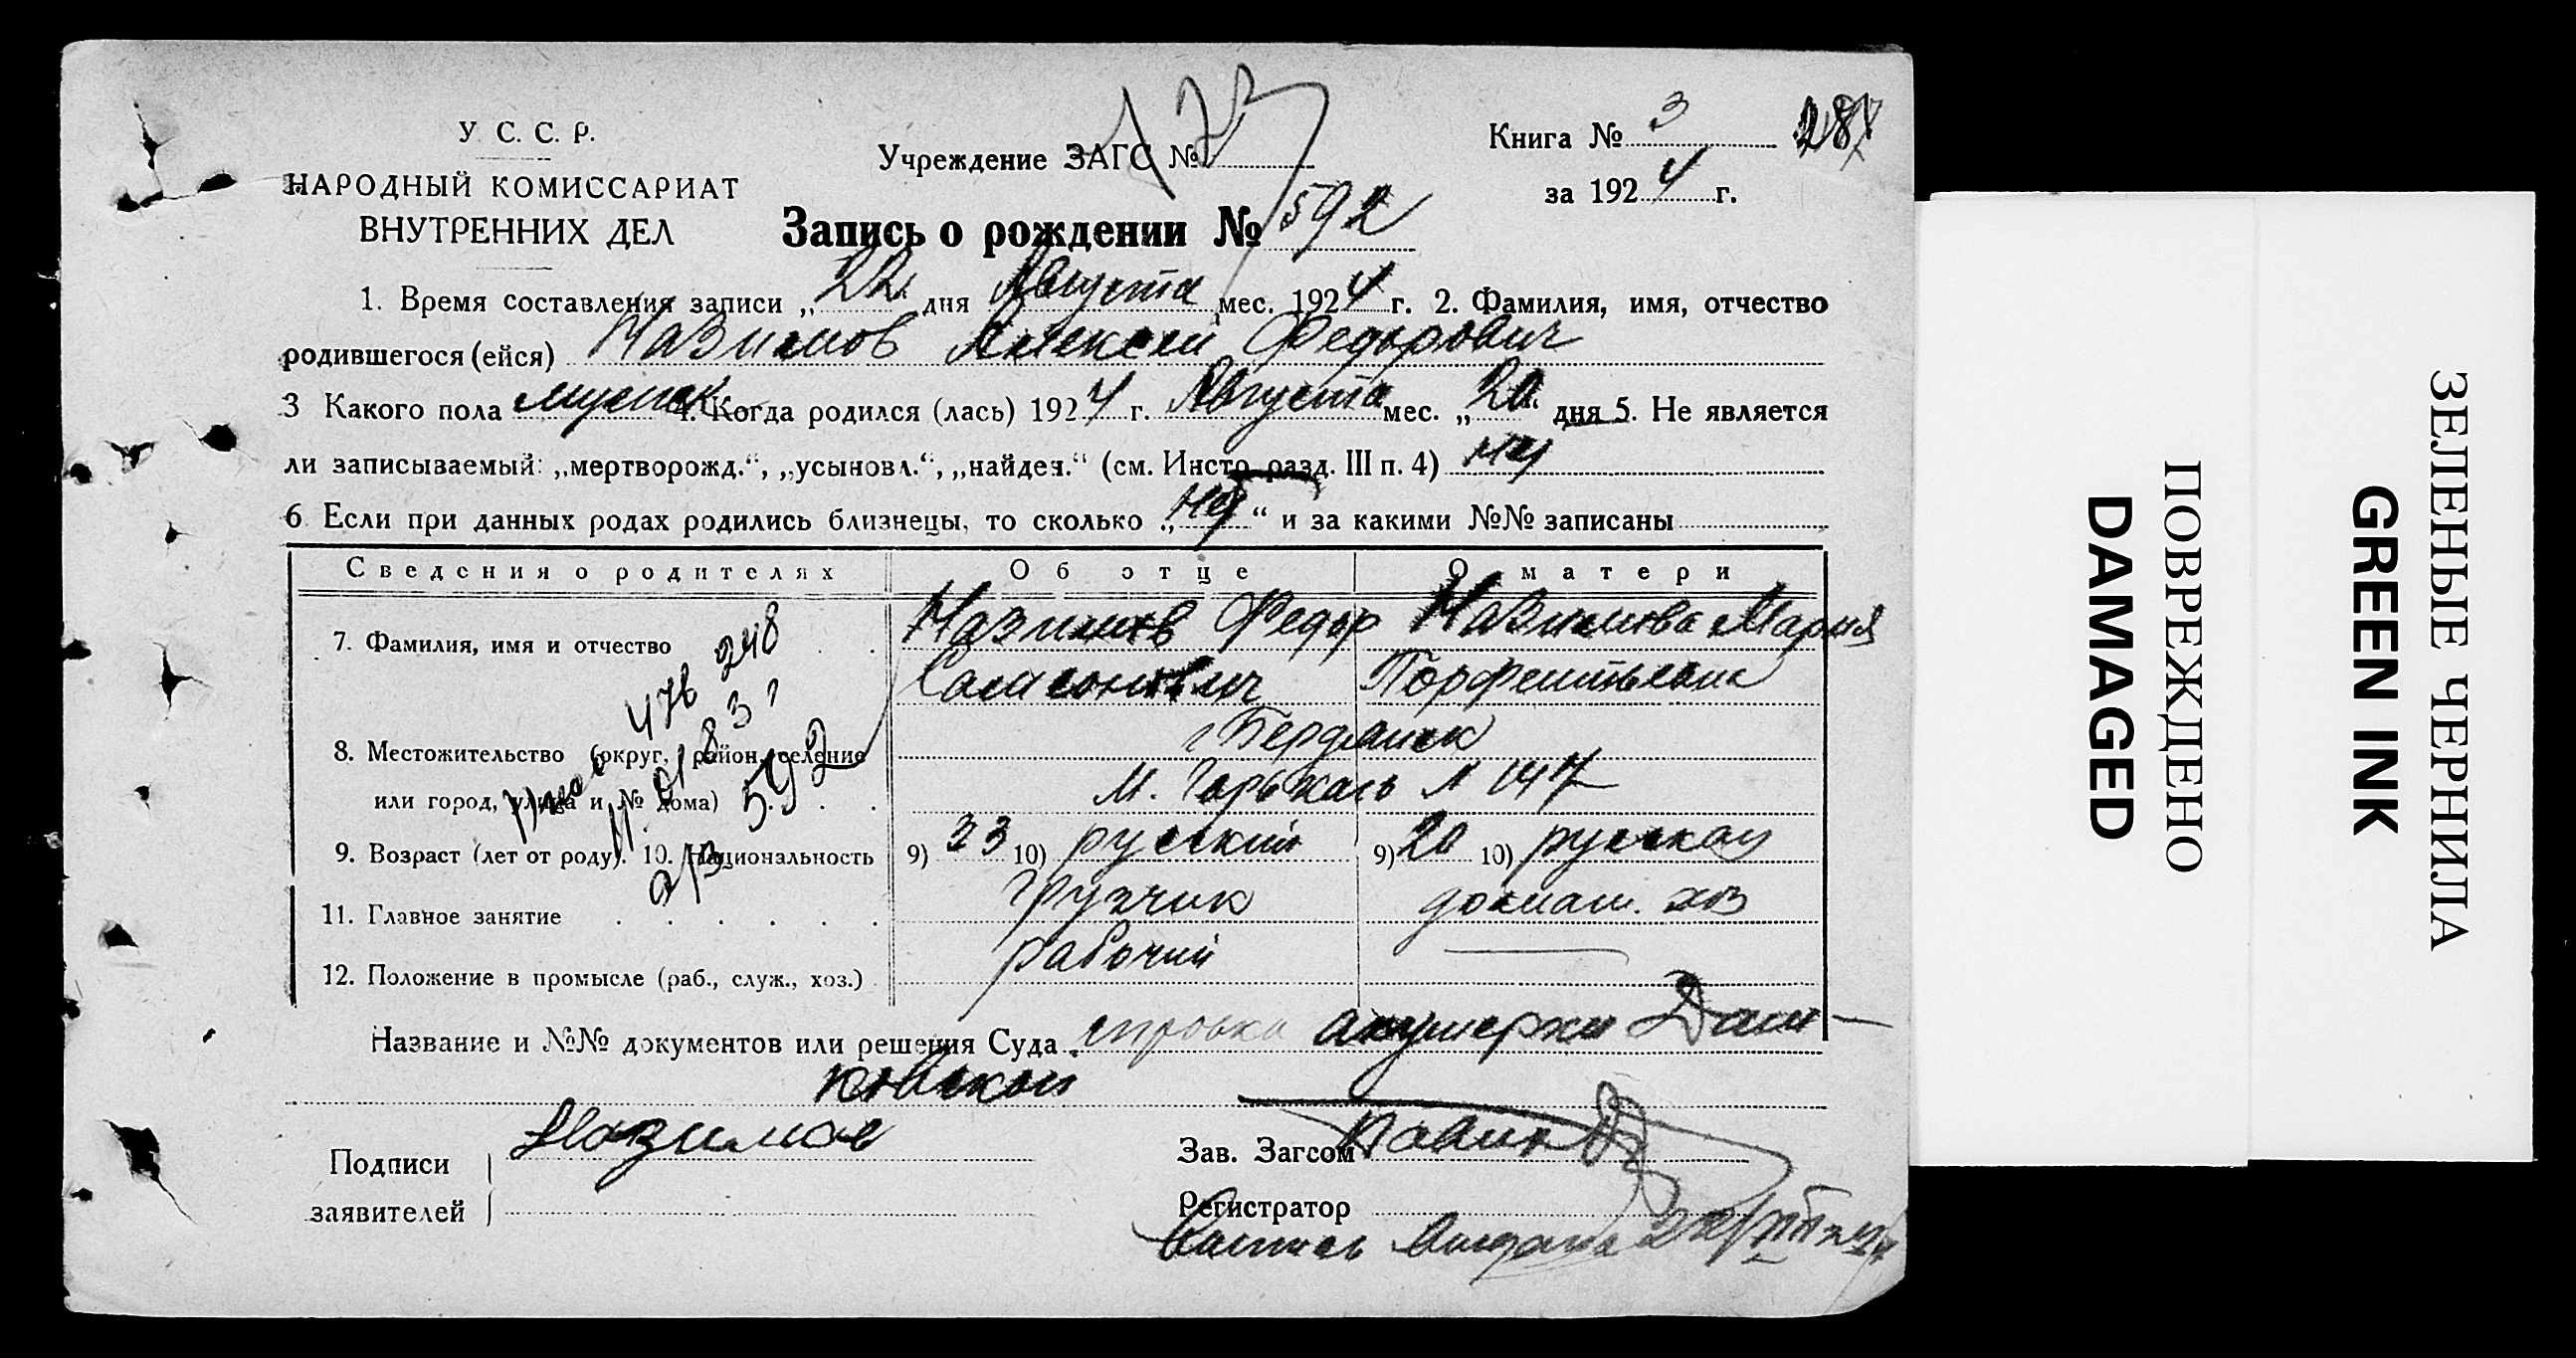 У. С. С. Р.
НАРОДНЫЙ КОМИССАРИАТ
ВНУТРЕННИХ ДЕЛ
Учреждение ЗАГС №
Книга № 3
за 1924 г.
Запись о рождении № 592
1. Время составления записи „22“ дня Августа мес. 1924 г. 2. Фамилия, имя, отчество
родившегося (ейся) Назимов Алексей Федорович
3 Какого пола мужск 4. Когда родился (лась) 1924 г. Августа мес. „20“ дня 5. Не является
ли записываемый: „мертворожд.“, „усыновл.“, „найден.“ (см. Инстр. разд. III п. 4) нет
6 Если при данных родах родились близнецы, то сколько „нет“ и за какими №№ записаны
Сведения о родителях Об отце О матери
7. Фамилия, имя и отчество Назимов Федор Назимова Мария
Самсонович
8. Местожительство (округ, район, селение г Бердянск
или город, улица и № дома) М. Горькаго № 147
9. Возраст (лет от роду). 10. Национальность 9) 33 10) русский 9) 20 10) русская
11. Главное занятие грузчик домаш. хоз
12. Положение в промысле (раб., служ., хоз.) рабочий
592
Название и №№ документов или решения Суда справка акушерки Даш-
ковской
Подписи заявителей Назимов
Зав. Загсом
Регистратор
ПОВРЕЖДЕНО
DAMAGED
ЗЕЛЕНЫЕ ЧЕРНИЛА
GREEN INK